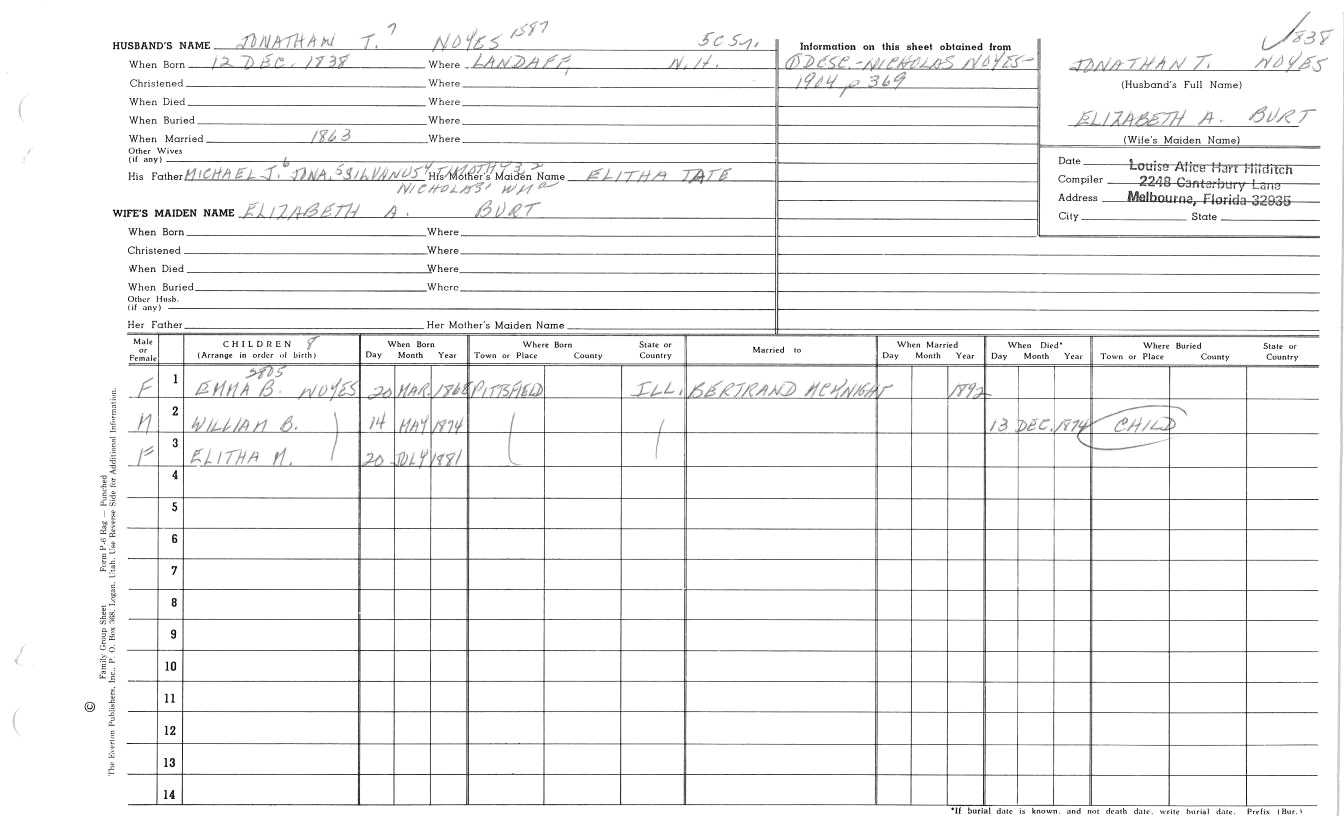 HUSBAND'S NAME JONATHAN T.7 NOYES 1587 5C Sn.
When Born 12 DEC. 1838 Where LANDAFF, N.H.
Christened Where
When Died Where
When Buried Where
When Married 1863 Where
Other Wives
(if any)
His Father MICHAEL J.6 JONA.5 SILVANUS4 TIMOTHY3,2 His Mother's Maiden Name ELITHA TATE
NICHOLAS1 WMa
WIFE'S MAIDEN NAME ELIZABETH A. BURT
When Born Where
Christened Where
When Died Where
When Buried Where
Other Husb.
(if any)
Her Father Her Mother's Maiden Name
Information on this sheet obtained from
① DESC.-NICHOLAS NOYES-
1904 p 369
1838
JONATHAN T. NOYES
(Husband's Full Name)
ELIZABETH A. BURT
(Wife's Maiden Name)
Date Louise Alice Hart Hilditch
Compiler 2248 Canterbury Lane
Address Melbourne, Florida 32935
City State
Male or Female CHILDREN 8 (Arrange in order of birth) When Born Day Month Year Where Born Town or Place County State or Country Married to When Married Day Month Year When Died* Day Month Year Where Buried Town or Place County State or Country
2805
F 1 EMMA B. NOYES 20 MAR. 1868 PITTSFIELD ILL. BERTRAND MCKNIGHT 1892
M 2 WILLIAM B. 14 MAY 1874 13 DEC. 1874 CHILD
F 3 ELITHA M. 20 JULY 1881
4
5
6
7
8
9
10
11
12
13
14
*If burial date is known, and not death date, write burial date. Prefix (Bur.)
© Family Group Sheet Form P-6 Rag — Punched
The Everton Publishers, Inc., P. O. Box 368, Logan, Utah. Use Reverse Side for Additional Information.